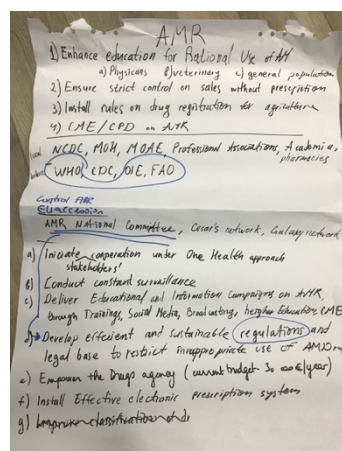 AMR
1) Enhance education for Rational Use of AM
a) Physicans b) veterinary c) general population
2) Ensure strict control on sales without prescription
3) Install rules on drug registration for agriculture
4) CME/CPD on AMR
local NCDC, MOH, MOAE, Professional Associations, Academia,
pharmacies
WHO, CDC, OIE, FAO
Control AMR
EU accession
AMR National Committee, Cesar's network, Galaxy network
a) Iniciate cooperation under One Health approach
stakeholders'
b) Conduct constant surveillance
c) Deliver Educational and Information Campaigns on AMR,
through Trainings, Social Media, Broadcasting, hergher Education, CME
d) Develop efficient and sustainable regulations and
legal base to restrict inappropriate use of
e) Empower the Drugs agency (current budget 30 000 €/year)
f) Install Effective electronic prescription system
g) Improve classification of